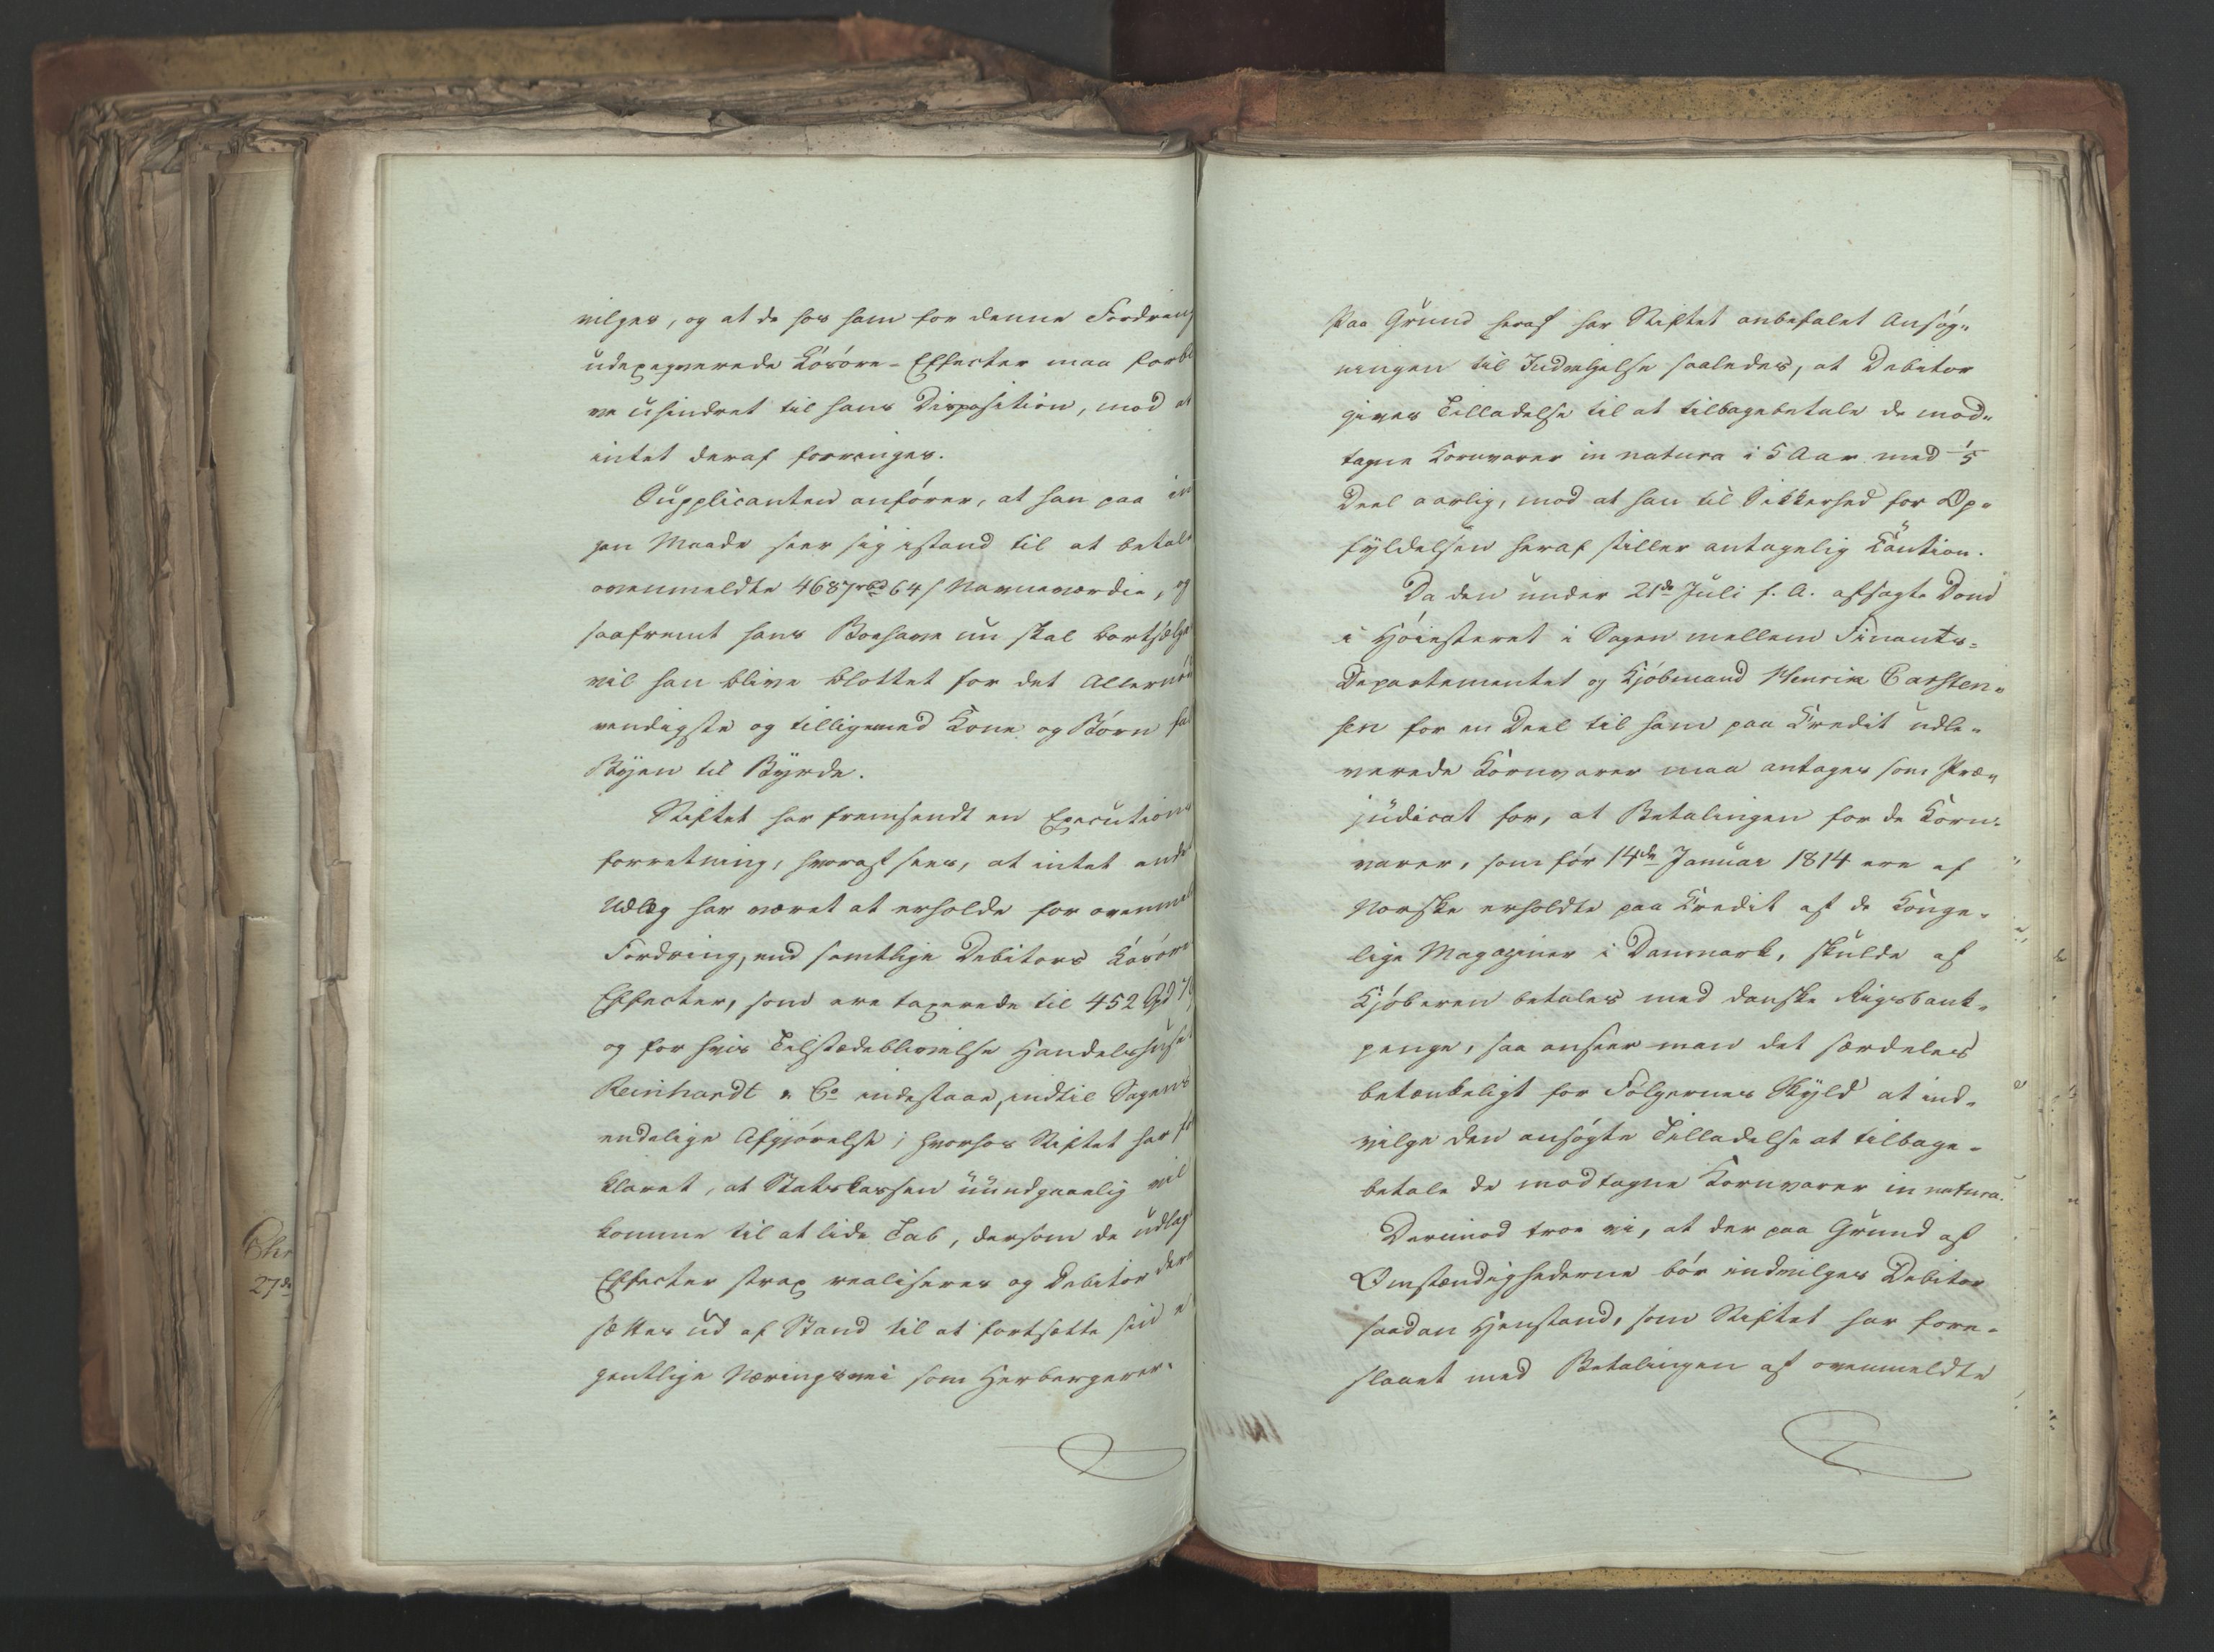 vilges, og at de hos ham for denne Fordring
udexeqverede Løsøre-Effecter maa forbli
ve uhindret til hans Disposition, mod at
intet deraf forringes.
Supplicanten anfører, at han paa in
gen Maade seer sig istand til at betale
ovenmeldte 4687 rbd 64 s Navneværdie, og
saafremt hans Boehave nu skal bortsælges
vil han blive blottet for det Allernød
vendigste og tilligemed Kone og Børn falde
Byen til Byrde.
Stiftet har fremsendt en Executions
forretning, hvoraf sees, at intet andet
Udlæg har været at erholde for ovenmel
Fordring, end samtlige Debitors Løsøre
Effecter, som ere taxerede til 452 Spd
og for hvis Tilstædeblivelse Handelshuset
Reinhardt & Co indestaae, indtil Sagens
endelige Afgjørelse; hvorhos Stiftet har for
klaret, at Statskassen uundgaaelig vil
komme til at lide Tab, dersom de udlagte
Effecter strax realiseres og Debitor derved
sættes ud af Stand til at fortsætte sin e
gentlige Næringsvei som Herbergerer.
Paa Grund heraf har Stiftet anbefalet Ansøg-
ningen til Indvilgelse saaledes, at Debitor
gives Tilladelse til at tilbagebetale de mod-
tagne Kornvarer in natura i 5 Aar med 1/5
Deel aarlig, mod at han til Sikkerhed for Op-
fyldelsen heraf stiller antagelig Caution.
Da den under 21de Juli f. A. afsagte Dom
i Høiesteret i Sagen mellem Finants-
Departementet og Kjøbmand Henrik Carsten-
sen for en Deel til ham paa Credit udle-
verede Kornvarer maa antages som Præ-
judicat for, at Betalingen for de Korn-
varer, som før 14de Januar 1814 ere af
Norske erholdte paa Credit af de Konge-
lige Magaziner i Danmark, skulde af
Kjøberen betales med danske Rigsbank-
penge, saa anseer man det særdeles
betænkeligt for Følgernes Skyld at ind-
vilge den ansøgte Tilladelse at tilbage-
betale de modtagne Kornvarer in natura.
Derimod troe vi, at der paa Grund af
Omstændighederne bør indvilges Debitor
saadan Henstand, som Stiftet har fore-
slaaet med Betalingen af ovenmeldte